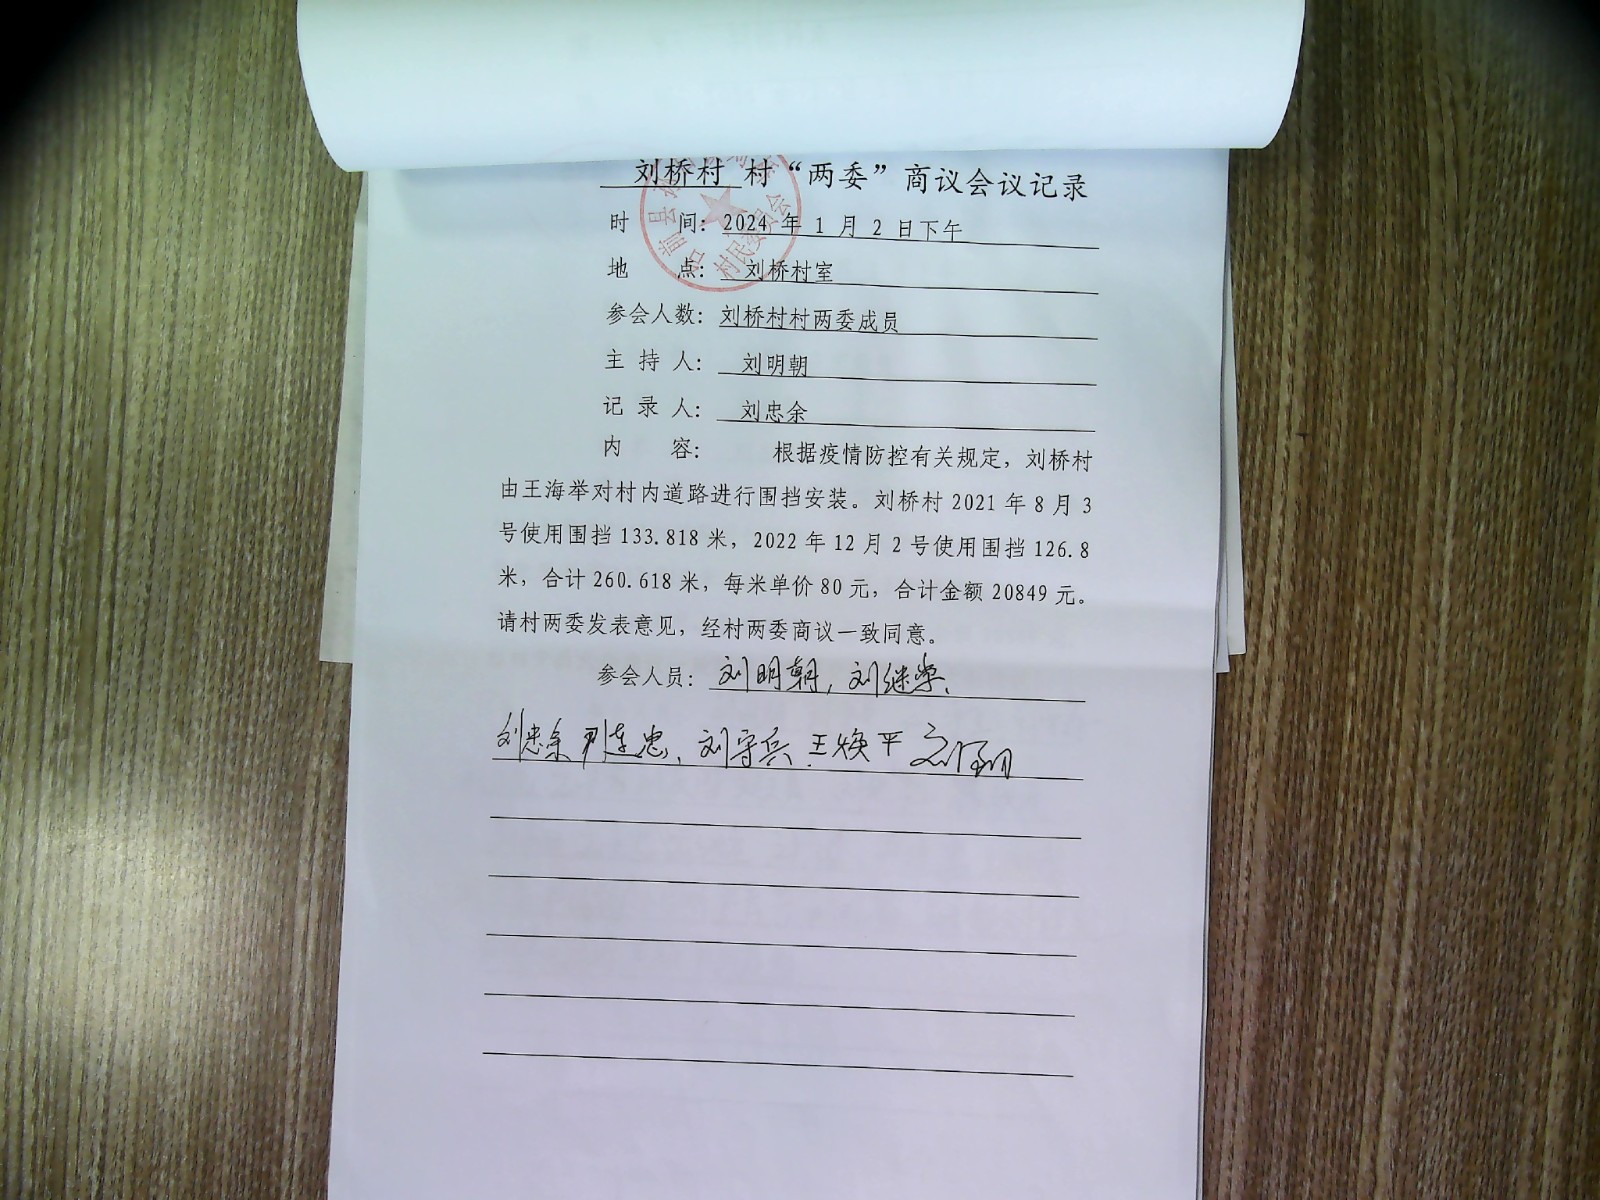 刘桥村 村“两委”商议会议记录
时 间：2024 年 1 月 2 日下午
地 点： 刘桥村室
参会人数：刘桥村村两委成员
主 持 人： 刘明朝
记 录 人： 刘忠余
内 容： 根据疫情防控有关规定，刘桥村
由王海举对村内道路进行围挡安装。刘桥村 2021 年 8 月 3
号使用围挡 133.818 米，2022 年 12 月 2 号使用围挡 126.8
米，合计 260.618 米，每米单价 80 元，合计金额 20849 元。
请村两委发表意见，经村两委商议一致同意。
参会人员：刘明朝，刘继学、
刘忠余 尹连忠、刘守兵 王焕平
村民委员会